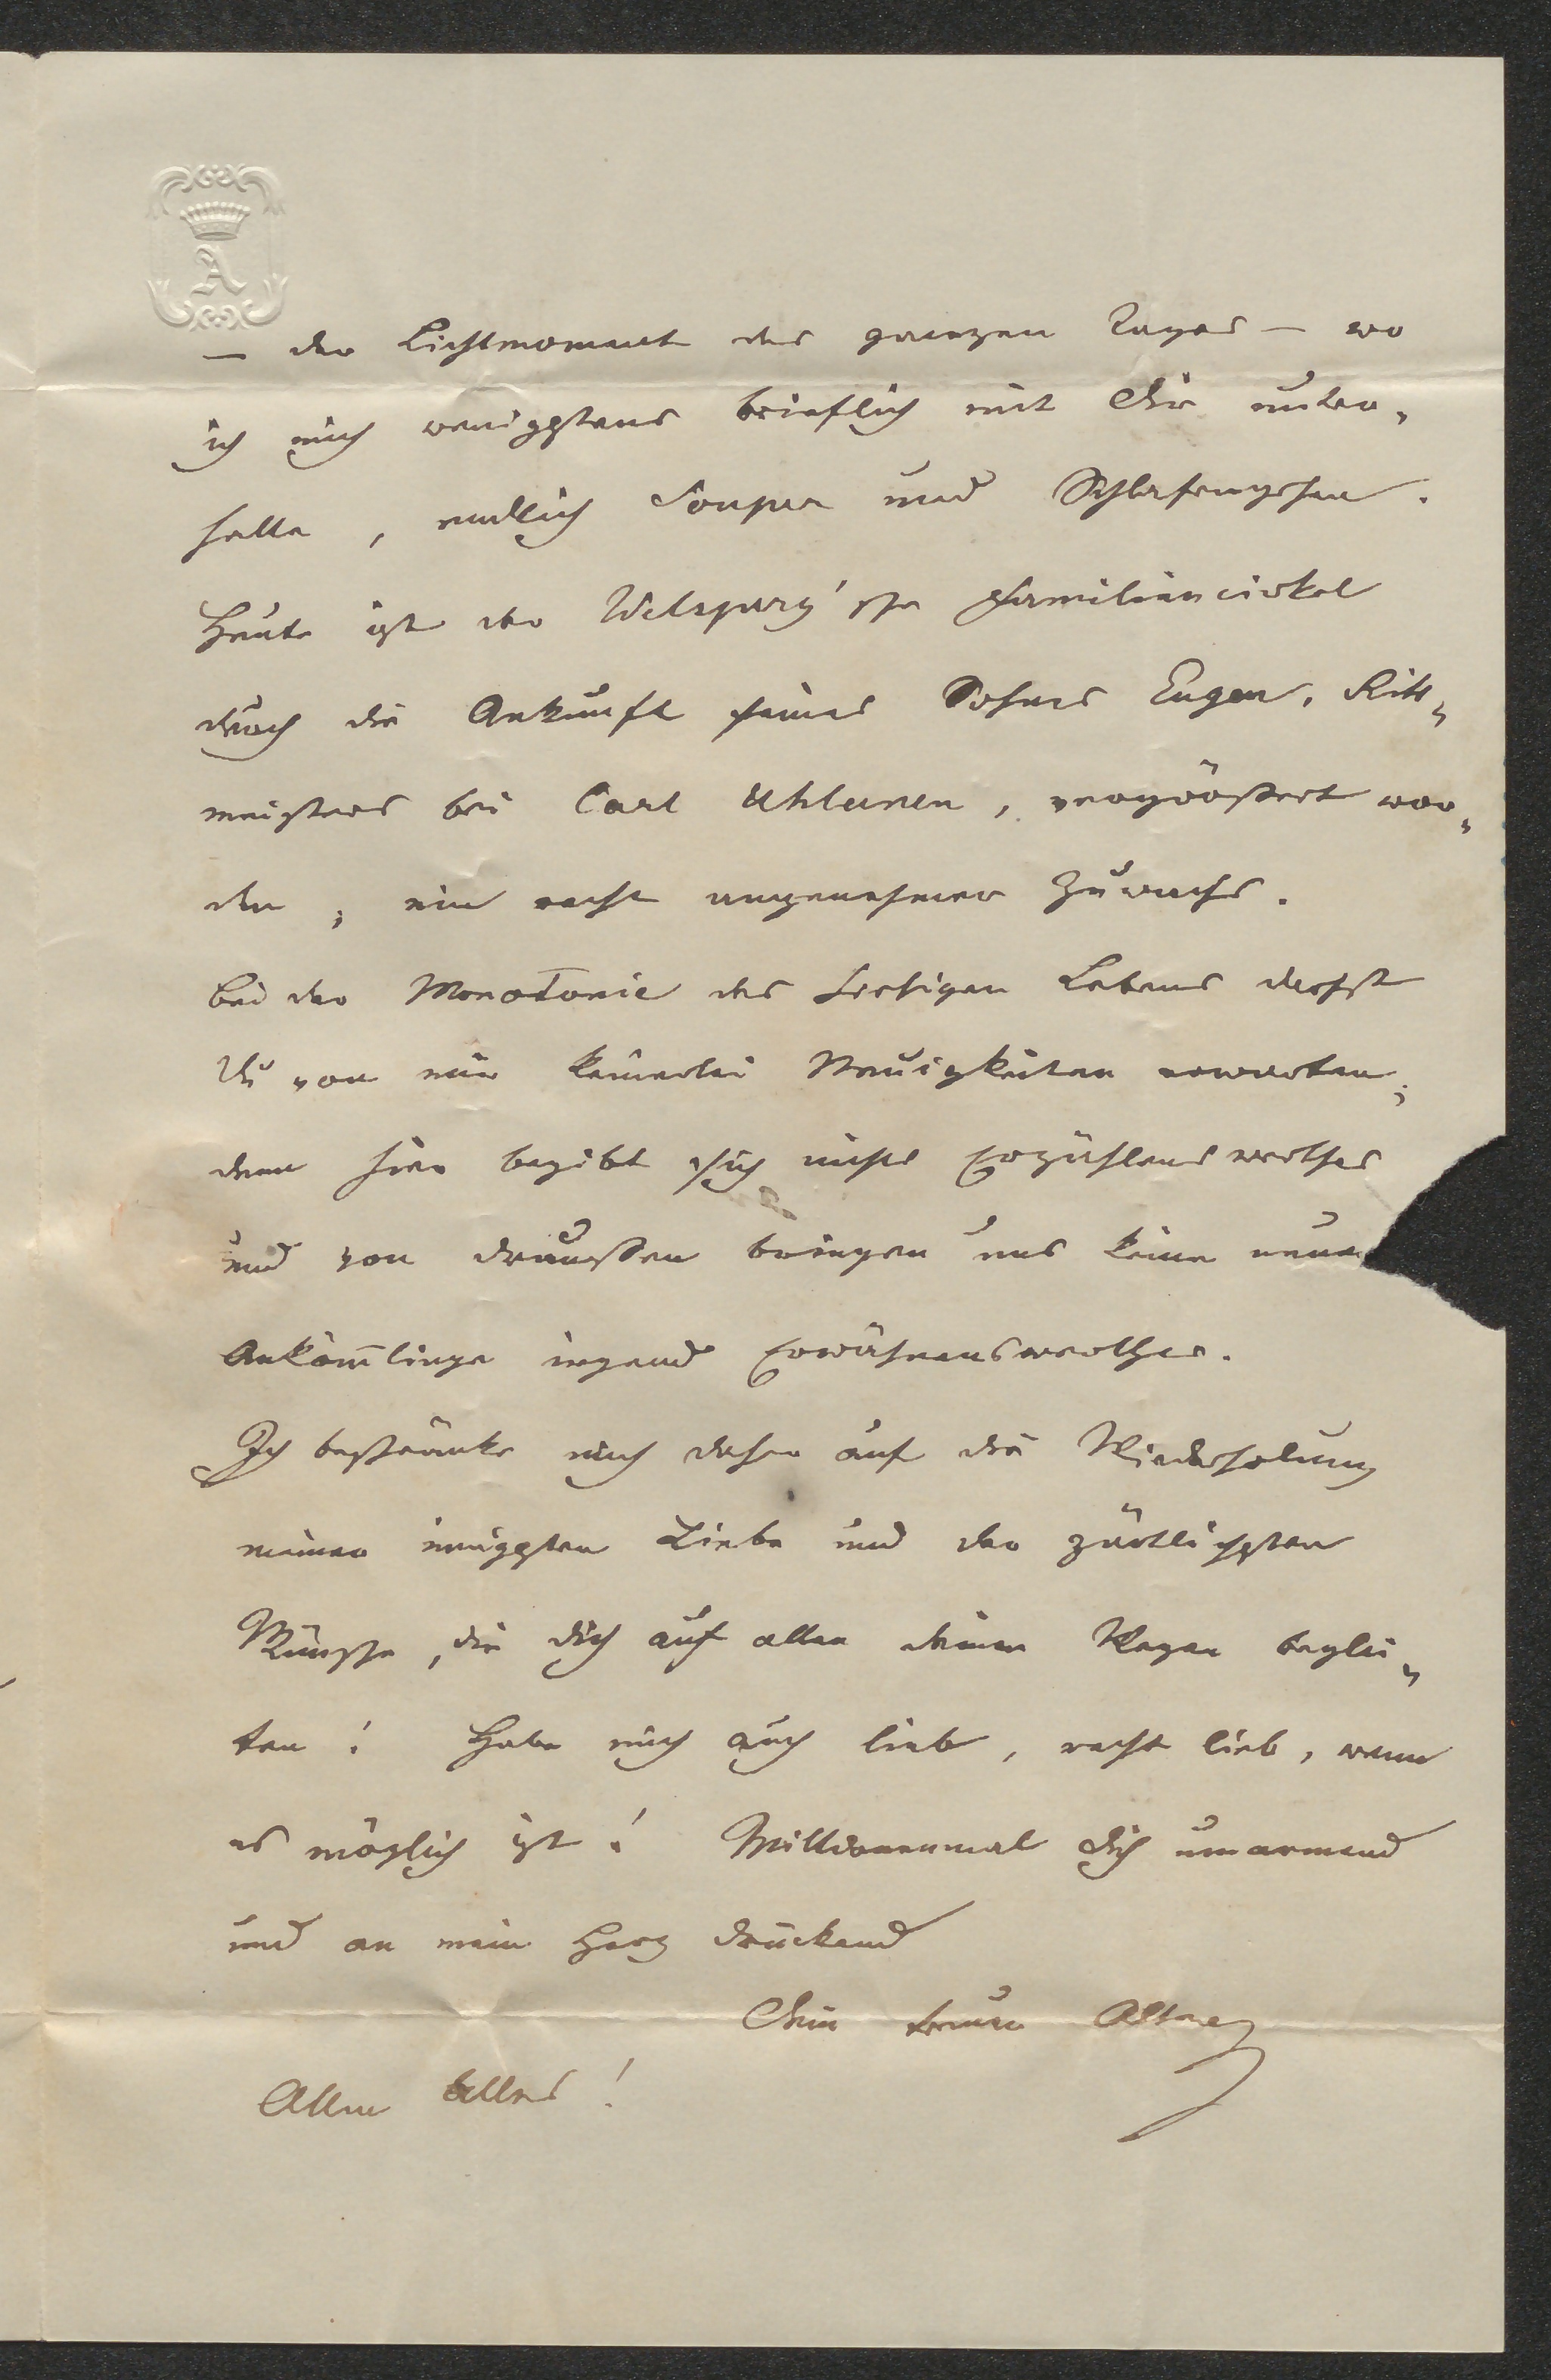 A
— der Lichtmoment des ganzen Tages — wo
ich mich wenigstens brieflich mit Dir unter„
halte, endlich Souper und Schlafengehen.
Heute ist der Welsperg'sche Familiencirkel
durch die Ankunft seines Sohnes Eugen, Ritt„
meisters bei Carl Uhlanen, vergrößert wor„
den, ein recht angenehmer Zuwachs.
Bei der Monotonie des hiesigen Lebens darfst
Du von mir keinerlei Neuigkeiten erwarten;
denn hier begibt sich nichts Erzählenswerthes
und von draußen bringen uns keine neuen
Ankom̄linge irgend Erwähnenswerthes.
Ich beschränke mich daher auf die Wiederholung
meiner innigsten Liebe und der zärtlichsten
Wünsche, die Dich auf allen deinen Wegen beglei„
ten! Habe mich auch lieb, recht lieb, wenn
es möglich ist! Milldonenmal Dich umarmend
und an mein Herz drückend
Dein treuer
Allen Alles!